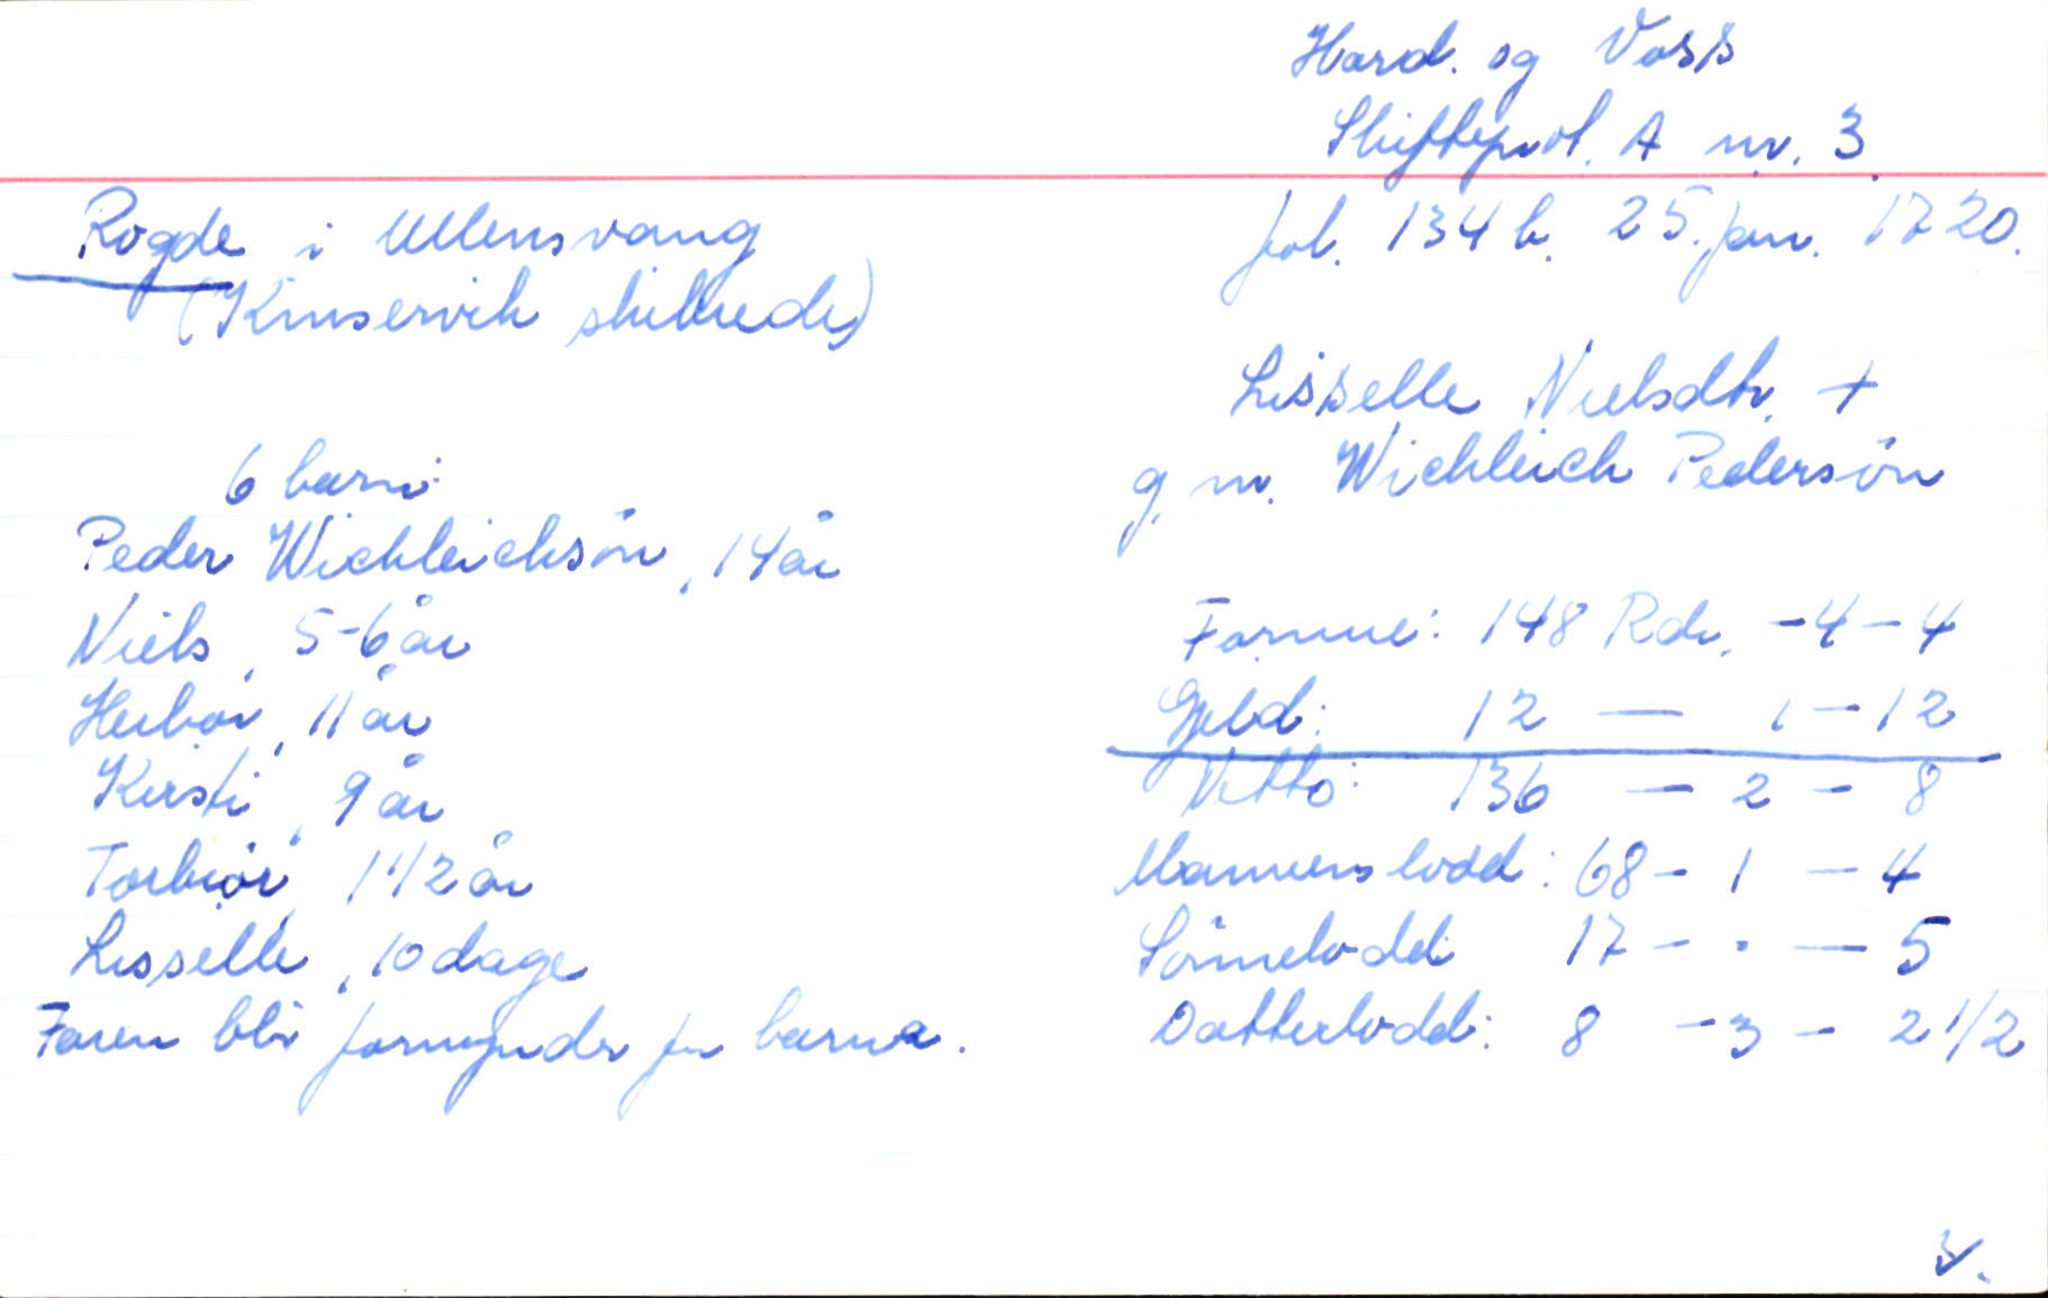 Hard. og Voss
Skifteprot. A nr. 3
Rogde i Ullensvang
fol. 134 b. 25. jan. 1720.
(Kinservik skibrede)
Lisselle Nielsdtr. +
g. m. Wichleich Pedersön
6 barn:
Peder Wichleichsön, 14 år
Niels, 5-6 år
Herbor, 11 år
Kirsti, 9 år
Torbiör, 1 1/2 år
Lisselle, 10 dage
Faren blir formynder for barna.
Formue: 148 Rdr. - 4 - 4
Gjeld: 12 — 1 - 12
Netto: 136 — 2 - 8
Mannens lodd: 68 - 1 - 4
Sönnelodd 17 - . — 5
Datterlodd: 8 - 3 - 2 1/2